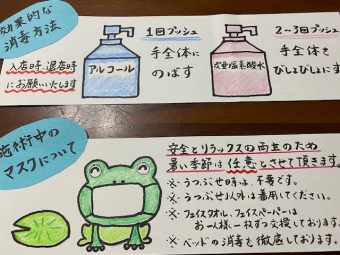 効果的な
消毒方法
入店時、退店時
にお願いいたします
アルコール
1回プッシュ
手全体に
のばす
次亜塩素酸水
2〜3回プッシュ
手全体を
びしょびしょにす
施術中の
マスクについて
安全とリラックスの両立のため
暑い季節は任意とさせて頂きます。
※・うつぶせ時は、不要です。
※・うつぶせ以外は着用してください。
※フェイスタオル、フェイスペーパーは
お一人様、一枚ずつ交換しております。
※ベッドの消毒も徹底しております。